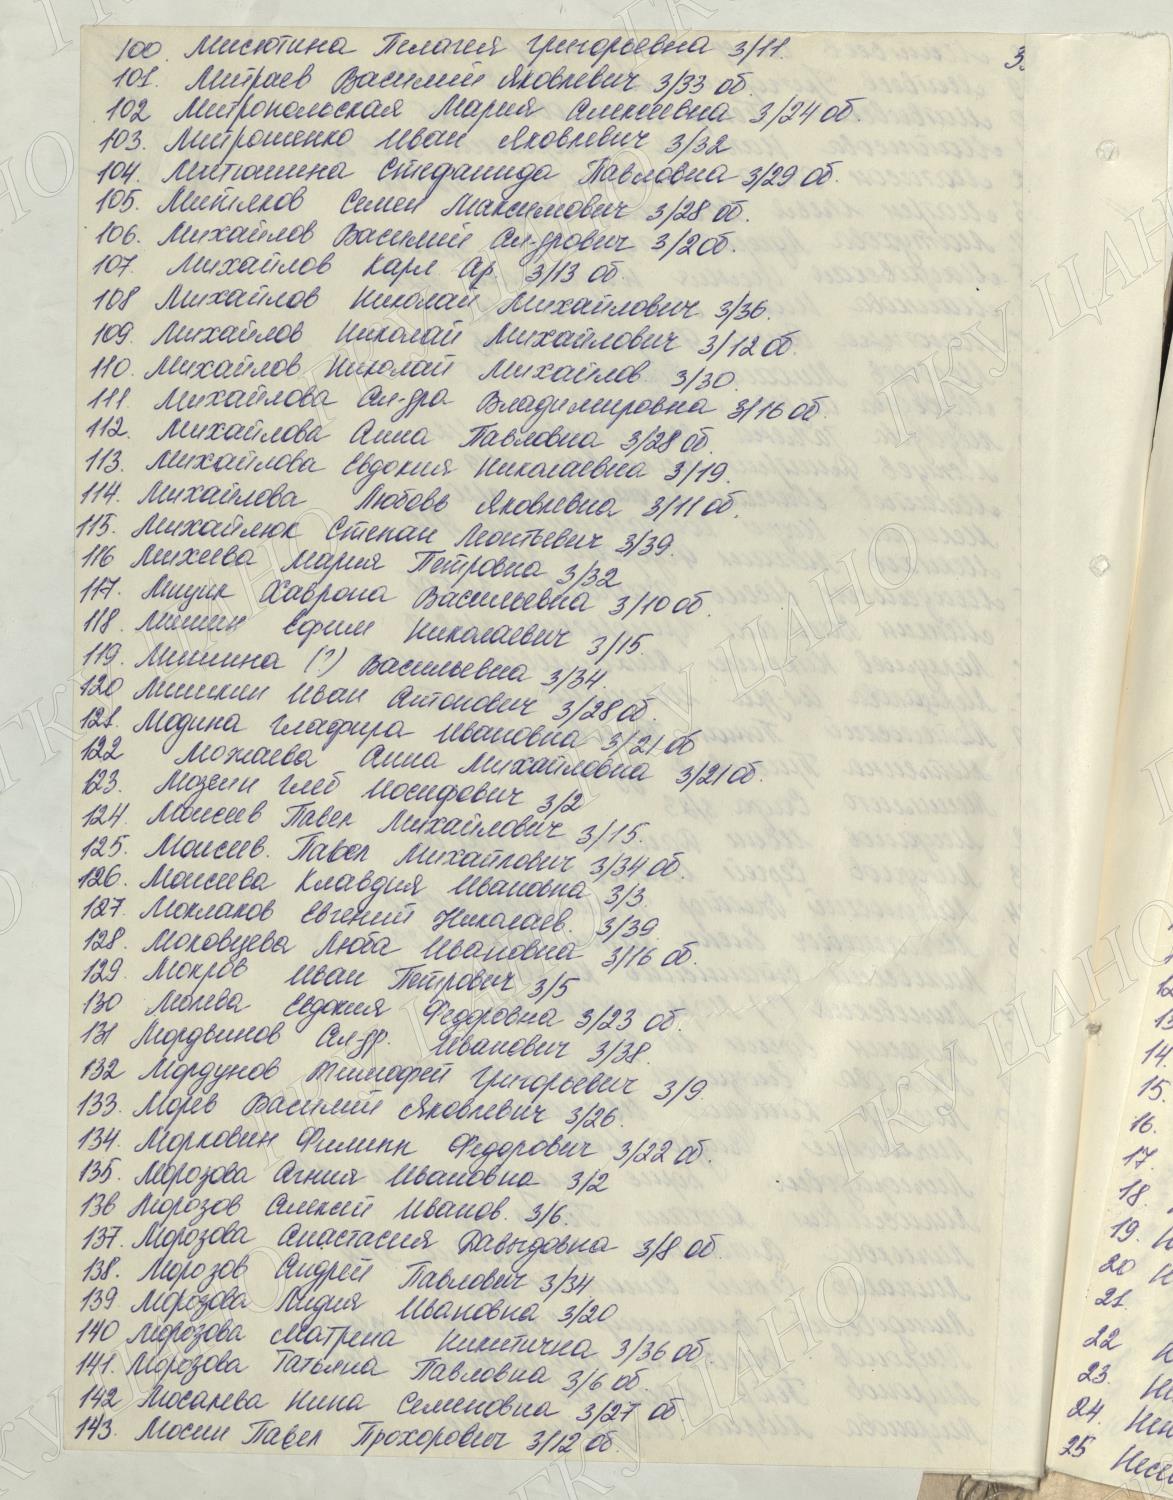 3.
100. Мисютина Пелагея Григорьевна 3/11.
101. Митраев Василий Яковлевич 3/33 об.
102 Митропольская Мария Алексеевна 3/24 об.
103. Митрошенко Иван Яковлевич 3/32
104. Митюшина Стефанида Павловна 3/29 об.
105. Митяков Семен Максимович 3/28 об.
106. Михайлов Василий Ал-дрович 3/2 об.
107. Михайлов Карл Ар. 3/13 об.
108 Михайлов Николай Михайлович 3/36.
109. Михайлов Николай Михайлович 3/12 об.
110. Михайлов Николай Михайлов. 3/30.
111. Михайлова Ал-дра Владимировна 3/16 об.
112. Михайлова Анна Павловна 3/28 об.
113. Михайлова Евдокия Николаевна 3/19.
114. Михайлова Любовь Яковлевна 3/11 об.
115. Михайлюк Степан Леонтьевич 3/39.
116 Михеева Мария Петровна 3/32
117. Мицик Хаврона Васильевна 3/10 об.
118. Мишин Ефим Николаевич 3/15.
119. Мишина (?) Васильевна 3/34.
120 Мишкин Иван Антонович 3/28 об.
121. Модина Глафира Ивановна 3/21 об
122 Можаева Анна Михайловна 3/21 об.
123. Мозгин Глеб Иосифович 3/2
124. Моисеев Павел Михайлович 3/15.
125. Моисеев. Павел Михайлович 3/34 об.
126. Моисеева Клавдия Ивановна 3/3.
127. Моклаков Евгений Николаев. 3/39.
128. Моковцева Люба Ивановна 3/16 об.
129. Мокров Иван Петрович 3/5
130 Молева Евдокия Федоровна 3/23 об.
131 Мордвинов Ал-др. Иванович 3/38.
132 Мордунов Тимофей Григорьевич 3/9.
133. Морев Василий Яковлевич 3/26.
134. Морковин Филипп Федорович 3/22 об.
135. Морозова Агния Ивановна 3/2
136 Морозов Алексей Иванов. 3/6.
137. Морозова Анастасия Давыдовна 3/8 об.
138. Морозов Андрей Павлович 3/34
139 Морозова Лидия Ивановна 3/20
140 Морозова Матрена Никитична 3/36 об.
141. Морозова Татьяна Павловна 3/6 об.
142 Мосалева Нина Семеновна 3/27 об.
143. Мосин Павел Прохорович 3/12 об.
14.
15.
16.
17.
18.
19.
20
21.
22
23.
24.
25
ГКУ ЦАНО